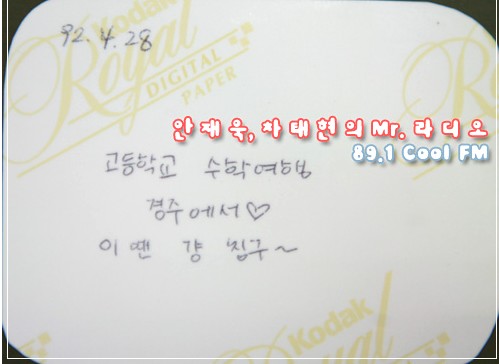 92.4.28
Kodak
Royal
DIGITAL
PAPER
안재욱,차태현의 Mr.라디오
89.1 Cool FM
고등학교 수학여행
경주에서♡
이땐 걍 칭구~
Kodak
Royal